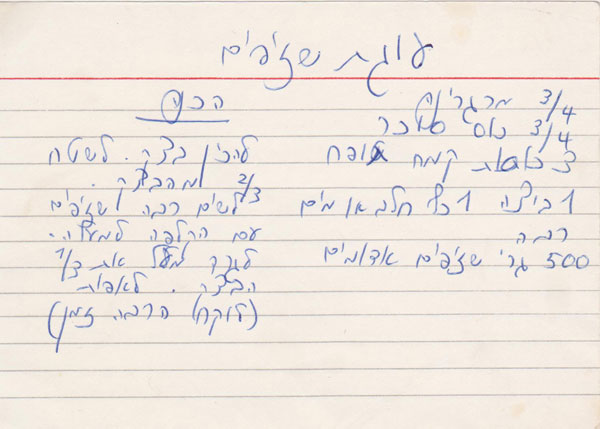 עוגת שזיפים
3/4 מרגרינה
3/4 כוס סוכר
3 כוסות קמח תופח
1 ביצה 1 כף חלב או מים
ריבה
500 גר' שזיפים אדומים
הכנה
להכין בצק. לשטח
2/3 מהבצק.
לשים ריבה ושזיפים
עם הקליפה למעלה.
לגרר מעל את 1/3
הבצק. לאפות
(לוקח) הרבה זמן)